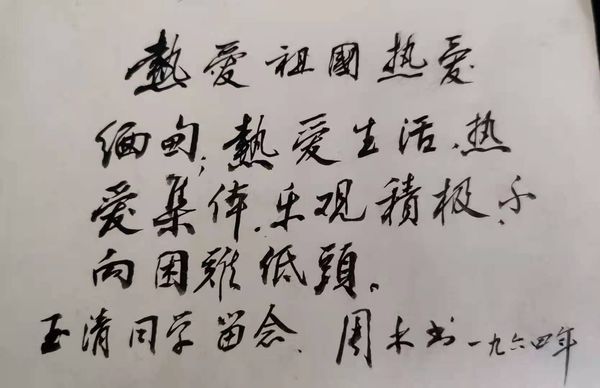 熱愛祖國热爱
缅甸,熱愛生活.热
爱集体.乐观積极,不
向困难低頭。
玉清同学留念. 周木书一九六四年